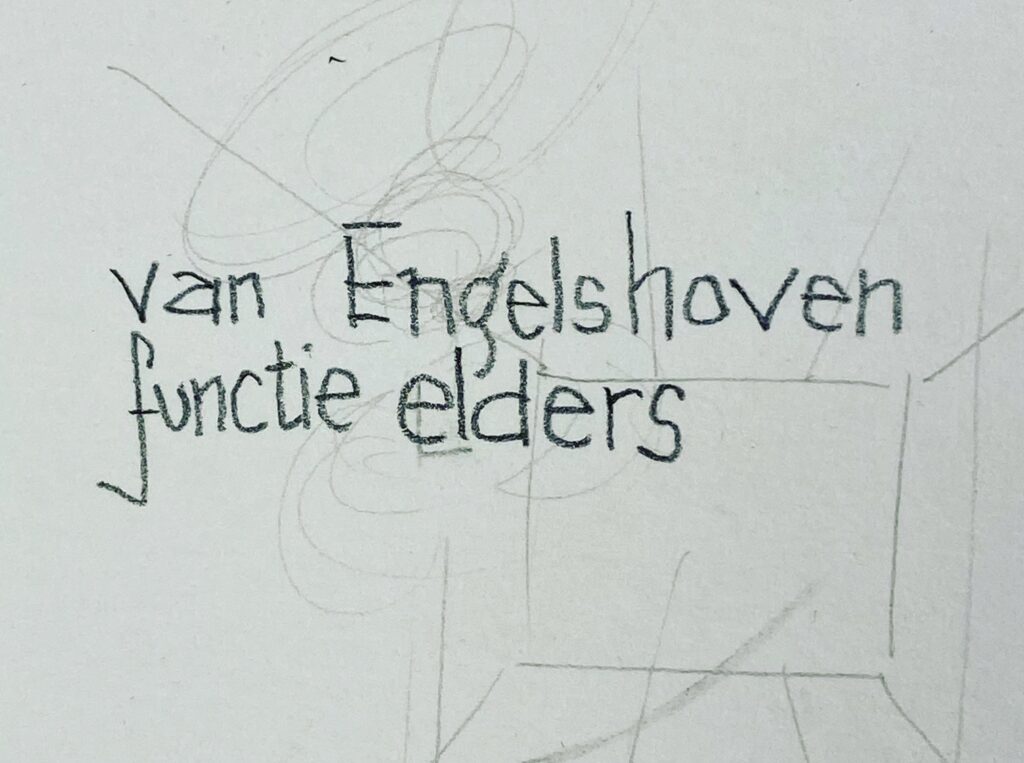 van Engelshoven
functie elders